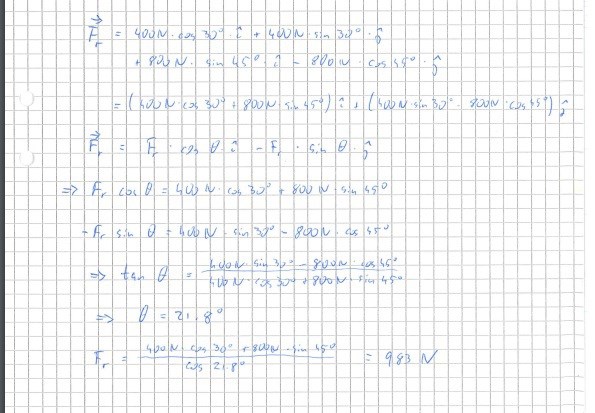 F⃗r = 400N·cos 30°·î + 400N·sin 30°·ĵ
+ 800N·sin 45°·î - 800N·cos 45°·ĵ
= (400N·cos 30° + 800N·sin 45°) î + (400N·sin 30° - 800N·cos 45°) ĵ
F⃗r = Fr·cos θ·î - Fr·sin θ·ĵ
⇒ Fr cos θ = 400N·cos 30° + 800N·sin 45°
-Fr sin θ = 400N·sin 30° - 800N·cos 45°
⇒ tan θ = (400N·sin 30° - 800N·cos 45°) / (400N·cos 30° + 800N·sin 45°)
⇒ θ = 21.8°
Fr = (400N·cos 30° + 800N·sin 45°) / (cos 21.8°) = 983 N